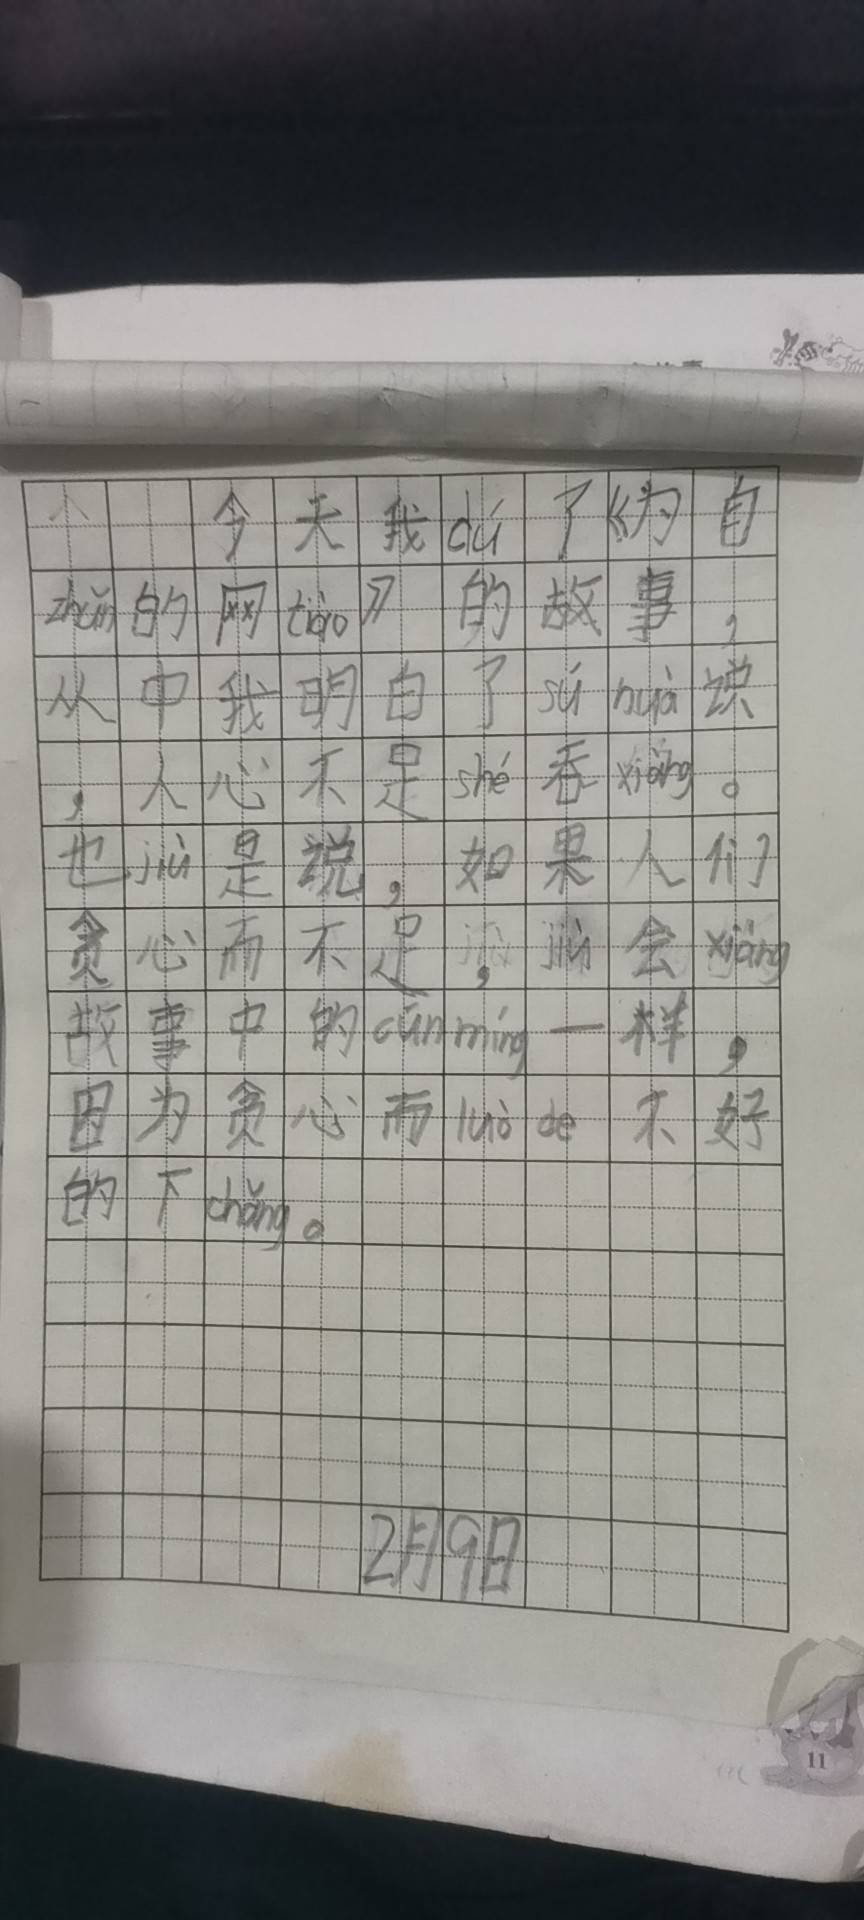 今天我dú了《为自
zhuàn的网tiào》的故事，
从中我明白了sú huà说
，人心不足shé吞xiàng。
也jiù是说，如果人们
贪心而不足，jiù会xiàng
故事中的cūn míng一样，
因为贪心而luò de不好
的下chǎng。
2月9日
11